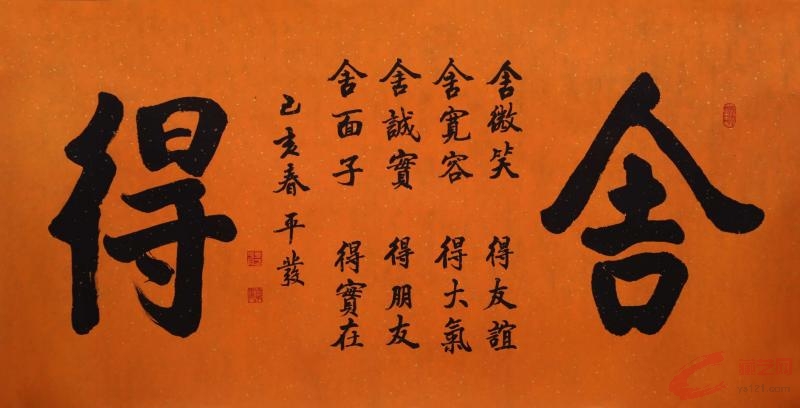 舍
舍微笑 得友誼
舍寬容 得大氣
舍誠實 得朋友
舍面子 得實在
己亥春平發
得